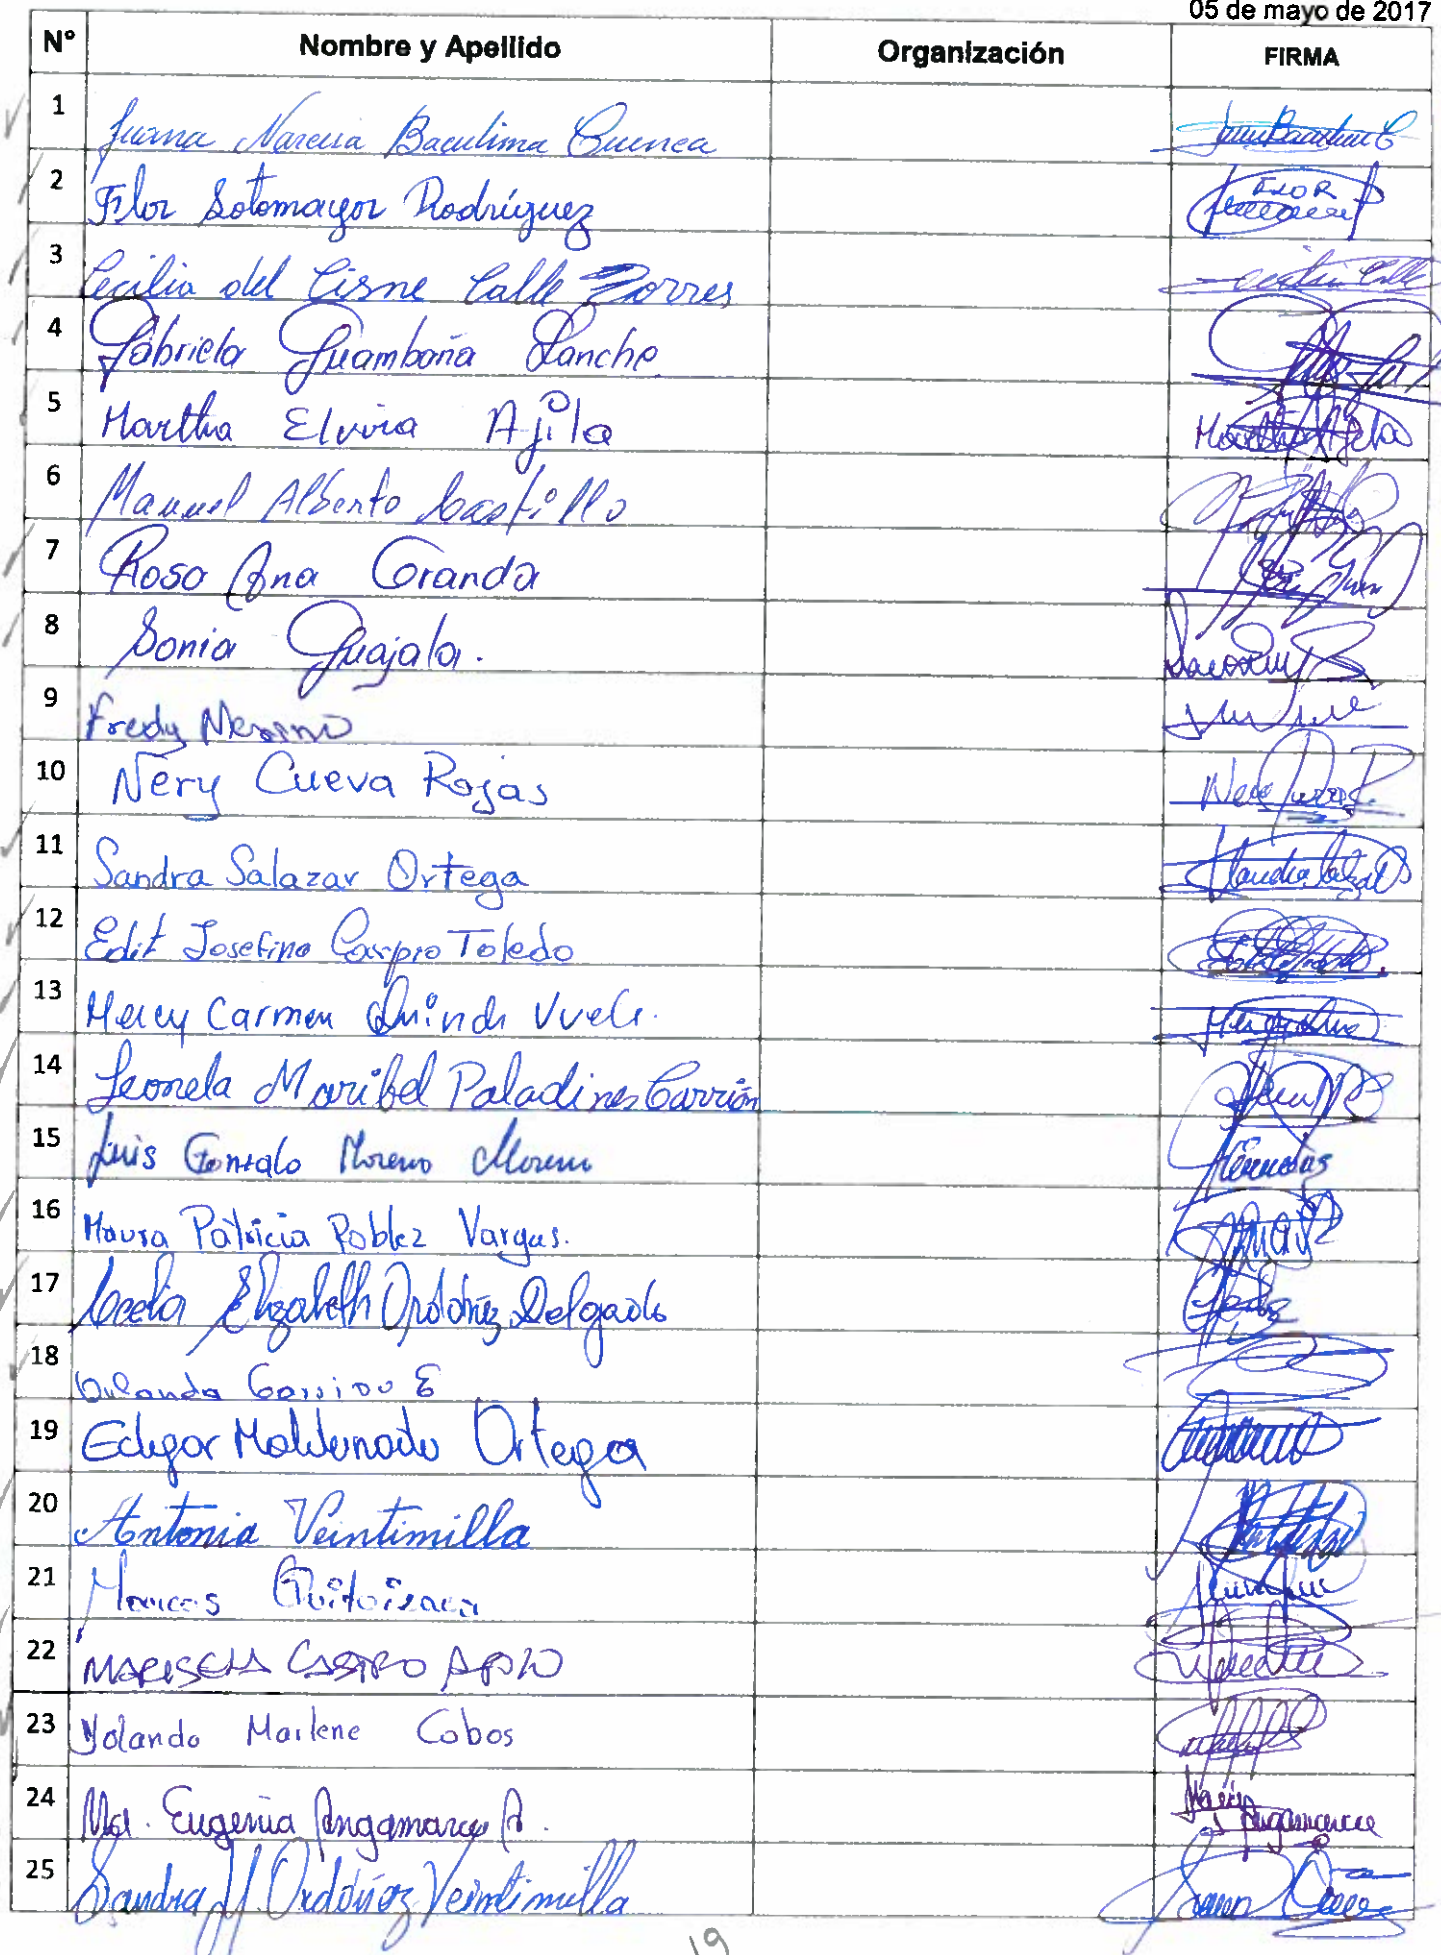 05 de mayo de 2017
N° Nombre y Apellido Organización FIRMA
1 Juana Narcisa Baculima Cuenca
2 Flor Sotomayor Rodríguez FLOR
3 Cecilia del Cisne Calle Torres Cecilia Calle
4 Gabriela Guambaña Lanche
5 Martha Elvira Ajila Martha Ajila
6 Manuel Alberto Castillo
7 Rosa Ana Granda
8 Sonia Guajala.
9 Fredy Moreno
10 Nery Cueva Rojas
11 Sandra Salazar Ortega
12 Edit Josefina Carpio Toledo
13 Mercy Carmen Quinde
14 Leonela Maribel Paladines Carrión
15 Luis Gonzalo Moreno Moreno
16 Maura Patricia Poblez Vargas.
17 Elizabeth Ordóñez Delgado
18 Garrido E
19 Edgar Maldonado Ortega
20 Antonia Veintimilla
21 Marcos Quituizaca
22 MARISELA CASTRO
23 Yolanda Marlene Cobos
24 Ma. Eugenia Angamarca A. María Angamarca
25 Sandra M. Ordóñez Veintimilla
19